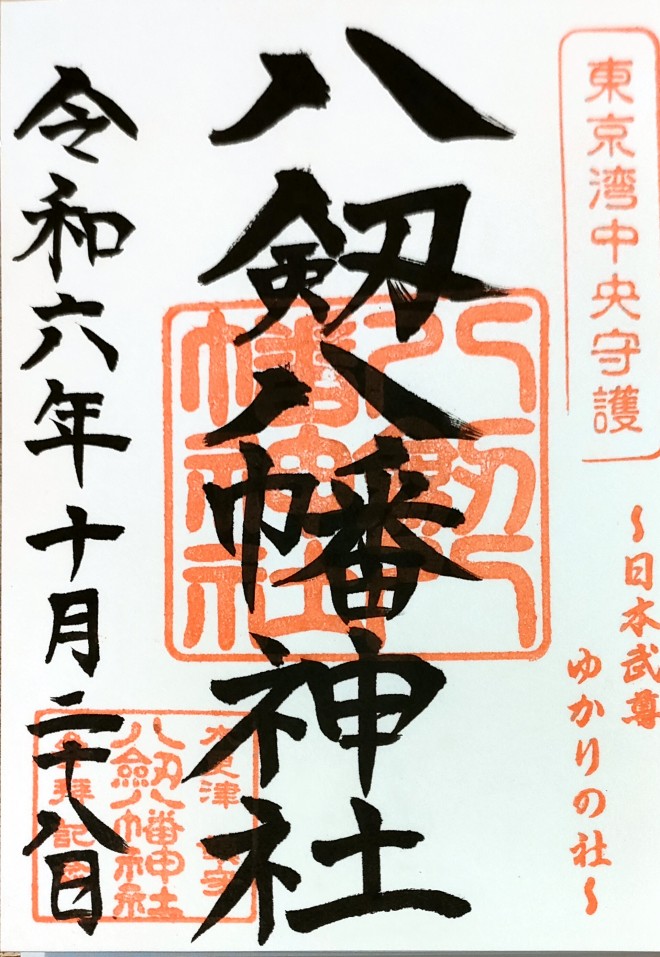 東京湾中央守護
〜日本武尊
ゆかりの社〜
八剱八幡神社
八剱八
幡神社
令和六年十月二十八日
木更津
八劔八幡神社
拝記